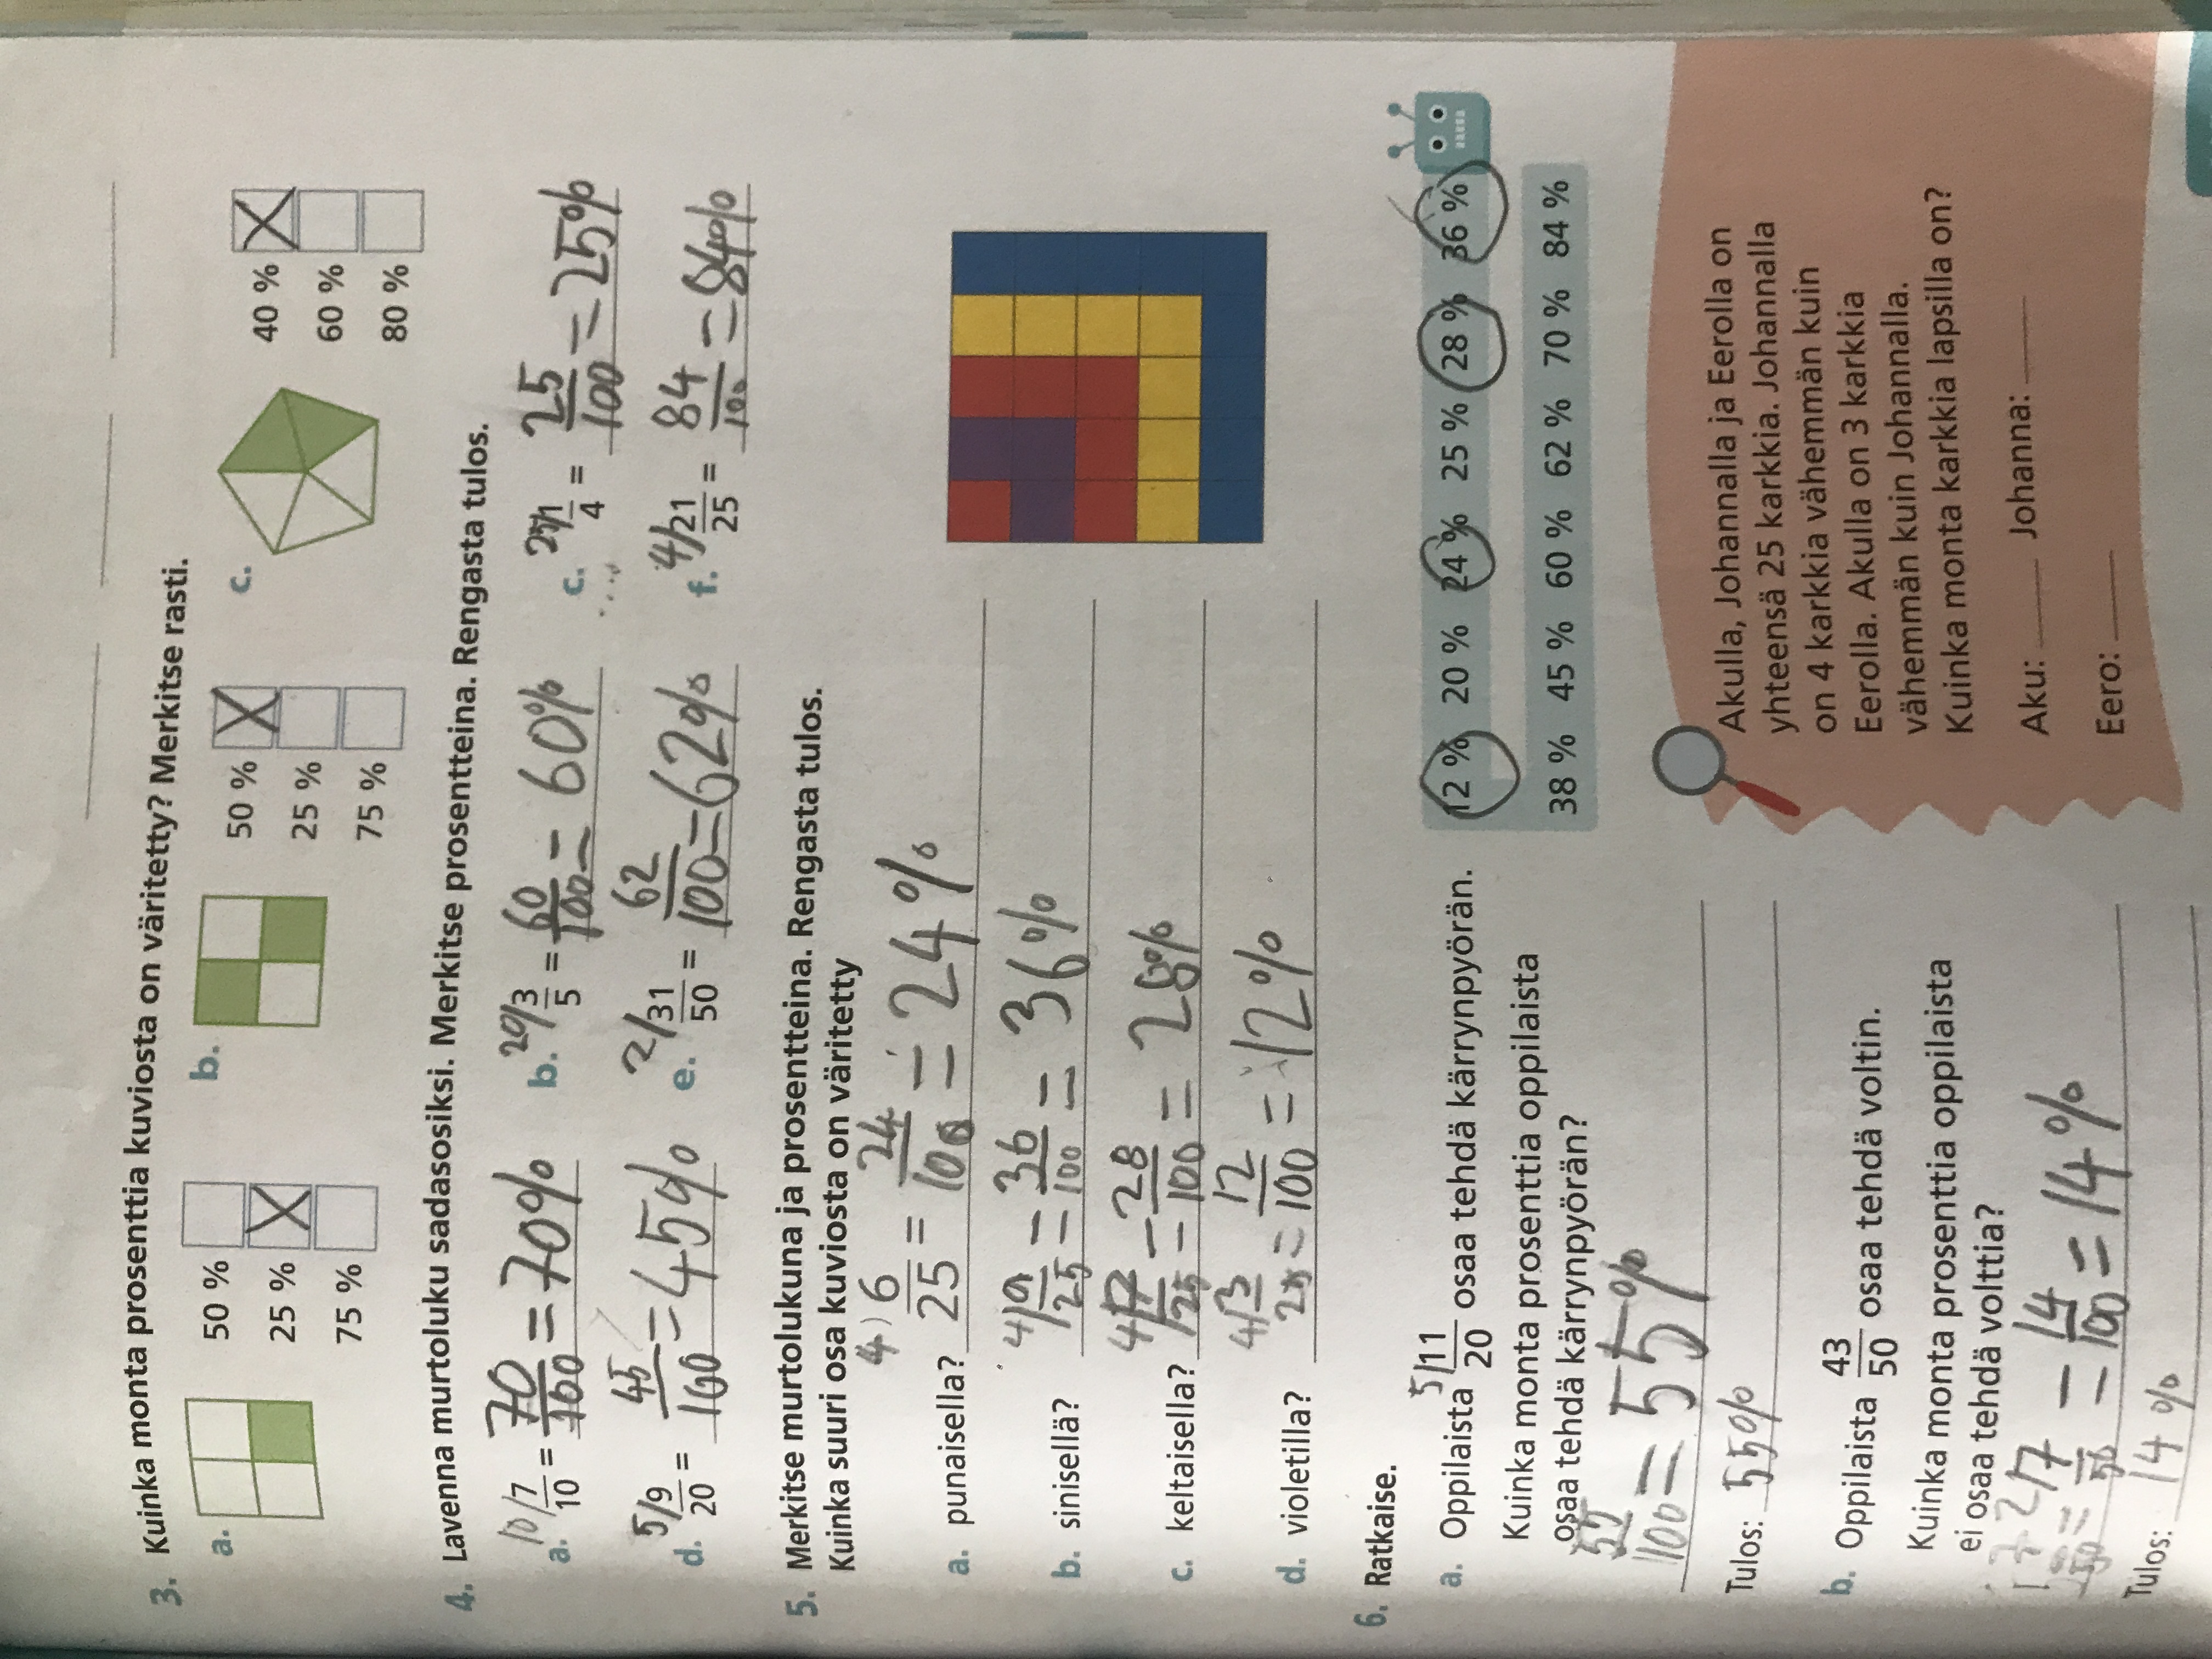 3. Kuinka monta prosenttia kuviosta on väritetty? Merkitse rasti.
a. 50 % 25 % X 75 %
b. 50 % X 25 % 75 %
c. 40 % X 60 % 80 %
4. Lavenna murtoluku sadasosiksi. Merkitse prosentteina. Rengasta tulos.
a. 10/ 7/10 = 70/100 = 70%
b. 20/ 3/5 = 60/100 = 60%
c. 25/ 1/4 = 25/100 = 25%
d. 5/ 9/20 = 45/100 = 45%
e. 2/ 31/50 = 62/100 = 62%
f. 4/ 21/25 = 84/100 = 84%
5. Merkitse murtolukuna ja prosentteina. Rengasta tulos.
Kuinka suuri osa kuviosta on väritetty
a. punaisella? 4) 6/25 = 24/100 = 24%
b. sinisellä? 4/ 9/25 = 36/100 = 36%
c. keltaisella? 4/ 7/25 = 28/100 = 28%
d. violetilla? 4/ 3/25 = 12/100 = 12%
12 % 20 % 24 % 25 % 28 % 36 %
38 % 45 % 60 % 62 % 70 % 84 %
6. Ratkaise.
a. Oppilaista 5/ 11/20 osaa tehdä kärrynpyörän.
Kuinka monta prosenttia oppilaista
osaa tehdä kärrynpyörän?
55/100 = 55%
Tulos: 55%
b. Oppilaista 43/50 osaa tehdä voltin.
Kuinka monta prosenttia oppilaista
ei osaa tehdä volttia?
2/ 7/50 = 14/100 = 14%
Tulos: 14%
Akulla, Johannalla ja Eerolla on
yhteensä 25 karkkia. Johannalla
on 4 karkkia vähemmän kuin
Eerolla. Akulla on 3 karkkia
vähemmän kuin Johannalla.
Kuinka monta karkkia lapsilla on?
Aku: Johanna:
Eero: